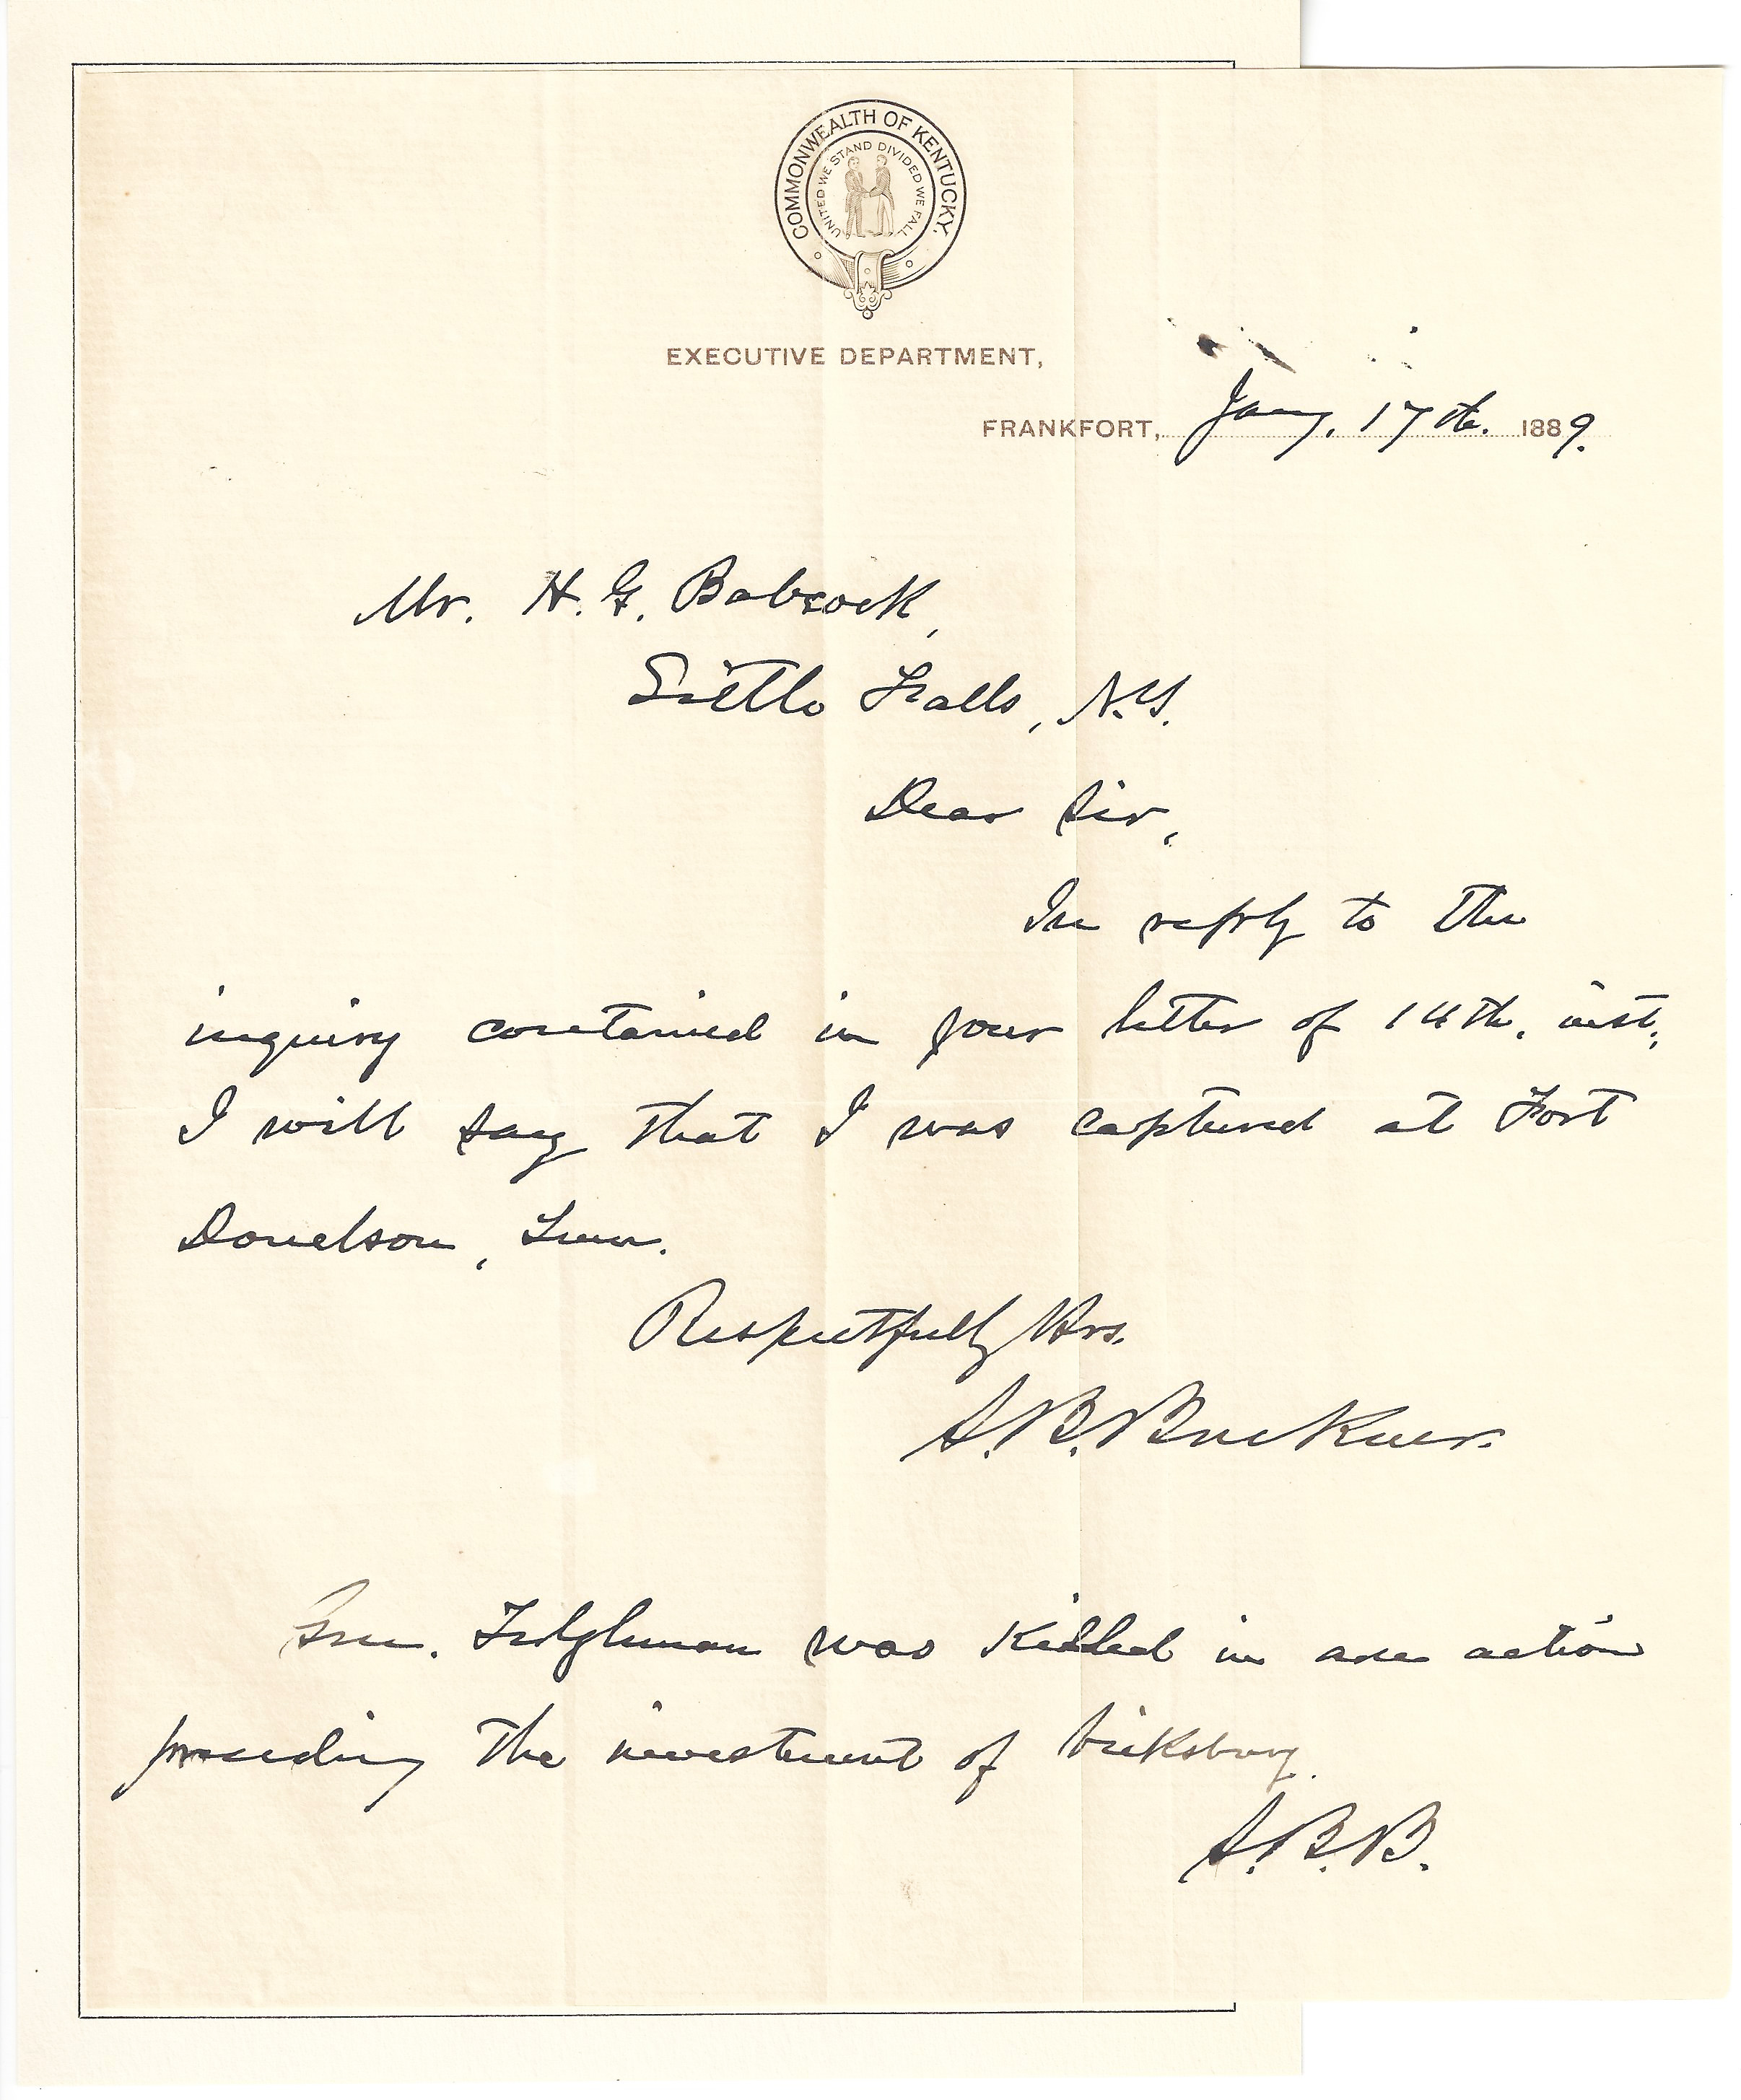 COMMONWEALTH OF KENTUCKY.
UNITED WE STAND DIVIDED WE FALL
EXECUTIVE DEPARTMENT,
FRANKFORT, Jany. 17th. 1889.
Mr. H. G. Babcock,
Little Falls, N.Y.
Dear Sir,
In reply to the
inquiry contained in your letter of 14th. inst.,
I will say that I was captured at Fort
Donelson, Tenn.
Respectfully Yrs.
S. B. Buckner.
Gen. Tilghman was killed in an action
preceding the investment of Vicksburg.
S.B.B.